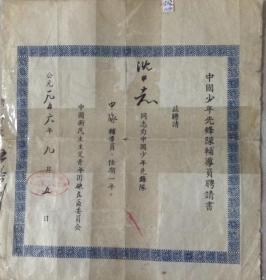 中國少年先鋒隊輔導員聘請書
茲聘請
沈
同志为中國少年先鋒隊
中隊輔導員任期一年。
中國新民主主义青年团
委員会
公元一九五六年九月五日